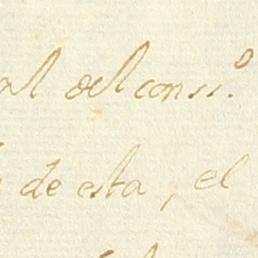 al del conss.º
de esta, el